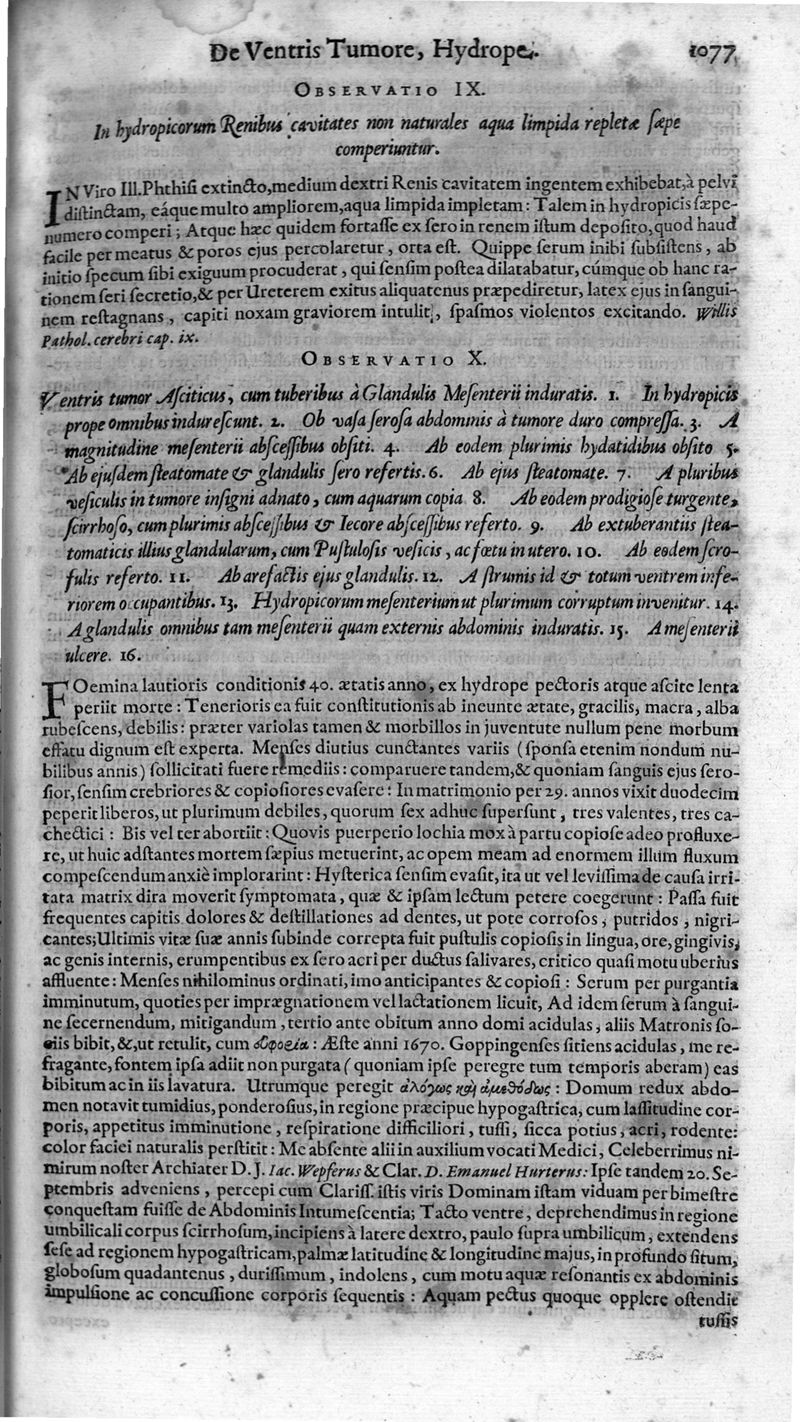 De Ventris Tumore, Hydrope. 1077
OBSERVATIO IX.
In hydropicorum Renibus cavitates non naturales aqua limpida repletæ ſæpe
comperiuntur.
IN Viro Ill. Phthiſi extincto, medium dextri Renis cavitatem ingentem exhibebat, à pelvi
diſtinctam, eáque multo ampliorem, aqua limpida impletam: Talem in hydropicis ſæpe-
numero comperi; Atque hæc quidem fortaſſe ex ſero in renem iſtum depoſito, quod haud
facile per meatus & poros ejus percolaretur, orta eſt. Quippe ſerum inibi ſubſiſtens, ab
initio ſpecum ſibi exiguum procuderat, qui ſenſim poſtea dilatabatur, cúmque ob hanc ra-
tionem ſeri ſecretio, & per Ureterem exitus aliquatenus præpediretur, latex ejus in ſangui-
nem reſtagnans, capiti noxam graviorem intulit, ſpaſmos violentos excitando. Willis
Pathol. cerebri cap. ix.
OBSERVATIO X.
Ventris tumor Aſciticus, cum tuberibus à Glandulis Meſenterii induratis. 1. In hydropicis
prope omnibus indureſcunt. 2. Ob vaſa ſeroſa abdominis à tumore duro compreſſa. 3. A
magnitudine meſenterii abſceſſibus obſiti. 4. Ab eodem plurimis hydatidibus obſito 5.
Ab ejuſdem ſteatomate & glandulis ſero refertis. 6. Ab ejus ſteatomate. 7. A pluribus
veſiculis in tumore inſigni adnato, cum aquarum copia 8. Ab eodem prodigioſe turgente,
ſcirrhoſo, cum plurimis abſceſſibus & Iecore abſceſſibus referto. 9. Ab extuberantiis ſtea-
tomaticis illius glandularum, cum Puſtuloſis veſicis, ac fœtu in utero. 10. Ab eodem ſcro-
fulis referto. 11. Ab arefactis ejus glandulis. 12. A ſtrumis id & totum ventrem infe-
riorem occupantibus. 13. Hydropicorum meſenterium ut plurimum corruptum invenitur. 14.
A glandulis omnibus tam meſenterii quam externis abdominis induratis. 15. A meſenterii
ulcere. 16.
FOemina lautioris conditionis 40. ætatis anno, ex hydrope pectoris atque aſcite lenta
periit morte: Tenerioris ea fuit conſtitutionis ab ineunte ætate, gracilis, macra, alba
rubeſcens, debilis: præter variolas tamen & morbillos in juventute nullum pene morbum
effatu dignum eſt experta. Menſes diutius cunctantes variis (ſponſa etenim nondum nu-
bilibus annis) ſollicitati fuere remediis: comparuere tandem, & quoniam ſanguis ejus ſero-
ſior, ſenſim crebriores & copioſiores evaſere: In matrimonio per 29. annos vixit duodecim
peperit liberos, ut plurimum debiles, quorum ſex adhuc ſuperſunt, tres valentes, tres ca-
chectici: Bis vel ter abortiit: Quovis puerperio lochia mox à partu copioſe adeo profluxe-
re, ut huic adſtantes mortem ſæpius metuerint, ac opem meam ad enormem illum fluxum
compeſcendum anxiè implorarint: Hyſterica ſenſim evaſit, ita ut vel leviſſima de cauſa irri-
tata matrix dira moverit ſymptomata, quæ & ipſam lectum petere coegerunt: Paſſa fuit
frequentes capitis dolores & deſtillationes ad dentes, ut pote corroſos, putridos, nigri-
cantes; Ultimis vitæ ſuæ annis ſubinde correpta fuit puſtulis copioſis in lingua, ore, gingivis,
ac genis internis, erumpentibus ex ſero acri per ductus ſalivares, critico quaſi motu uberius
affluente: Menſes nihilominus ordinati, imo anticipantes & copioſi: Serum per purgantia
imminutum, quoties per imprægnationem vel lactationem licuit, Ad idem ſerum à ſangui-
ne ſecernendum, mitigandum, tertio ante obitum anno domi acidulas, aliis Matronis ſo-
ciis bibit, &, ut retulit, cum εὐφορία: Æſte anni 1670. Goppingenſes ſitiens acidulas, me re-
fragante, fontem ipſa adiit non purgata (quoniam ipſe peregre tum temporis aberam) eas
bibitum ac in iis lavatura. Utrumque peregit ἀλόγως καὶ ἀμεθόδως: Domum redux abdo-
men notavit tumidius, ponderoſius, in regione præcipue hypogaſtrica, cum laſſitudine cor-
poris, appetitus imminutione, reſpiratione difficiliori, tuſſi, ſicca potius, acri, rodente:
color faciei naturalis perſtitit: Me abſente alii in auxilium vocati Medici, Celeberrimus ni-
mirum noſter Archiater D. J. Iac. Wepferus & Clar. D. Emanuel Hurterus: Ipſe tandem 20. Se-
ptembris adveniens, percepi cum Clariſſ. iſtis viris Dominam iſtam viduam per bimeſtre
conqueſtam fuiſſe de Abdominis Intumeſcentia; Tacto ventre, deprehendimus in regione
umbilicali corpus ſcirrhoſum, incipiens à latere dextro, paulo ſupra umbilicum, extendens
ſeſe ad regionem hypogaſtricam, palmæ latitudine & longitudine majus, in profundo ſitum,
globoſum quadantenus, duriſſimum, indolens, cum motu aquæ reſonantis ex abdominis
impulſione ac concuſſione corporis ſequentis: Aquam pectus quoque opplere oſtendit
tuſſis